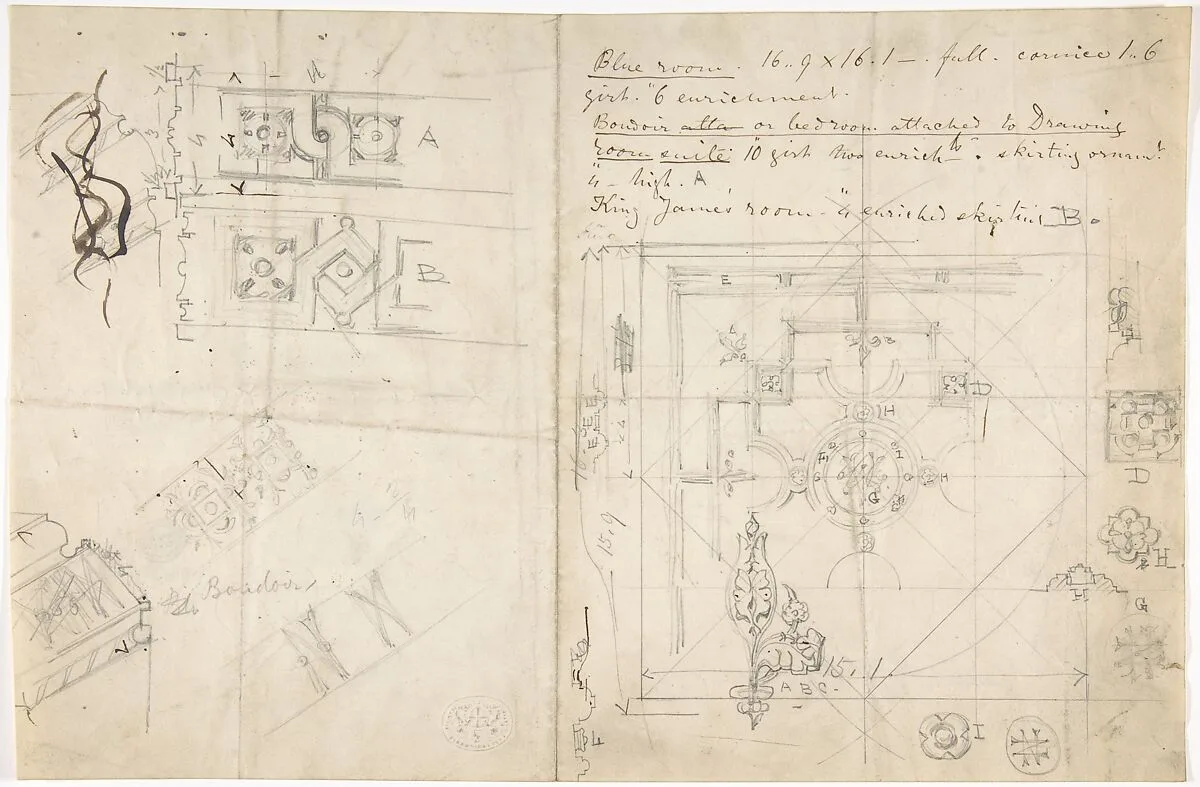 Blue room. 16.. 9 x 16. 1 - . full. cornice 1.. 6
girt. "6 enrichment.
Boudoir atta or bedroom attached to Drawing
room suite 10 girt two enrichts. skirting ornamt.
4 - high. A
King James' room - "4 enriched skirting B.
A
B
4
4
3
Boudoir
E
M
D
I
H
H
H
G
G
E
15.9
15. 1
A B C.
F
D
H
H
G
I